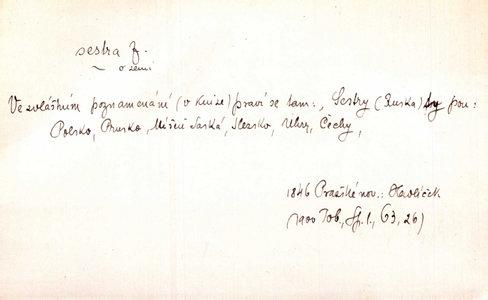 sestra f.
~ o zemi
Ve zvláštním poznamenání (v knize) praví se tam: „Sestry (Ruska) jsou:
Polsko, Prusko, Míšeň Saská, Slezsko, Uhry, Čechy,
1846 Pražské nov.: Havlíček
(1900 Tob, Sp. 1, 63, 26)